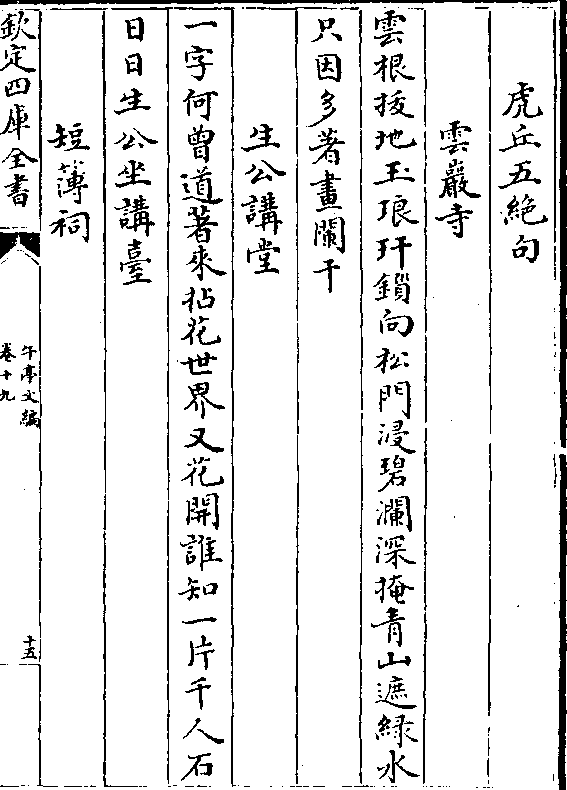 虎丘五絶句
雲巖寺
雲根拔地玉琅玕鎖向松門浸碧瀾深掩青山遮緑水
只因多著畫闌干
生公講堂
一字何曾道著來拈花世界又花開誰知一片千人石
日日生公坐講臺
短薄祠
欽定四庫全書
午亭文編
卷十九
十五